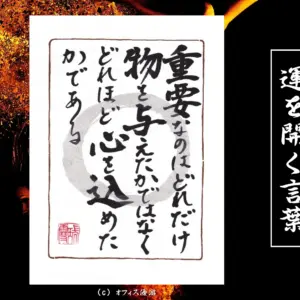 運を開く言葉
重要なのはどれだけ
物を与えたかではなく
どれほど心を込めた
かである
(c) オフィス海淵